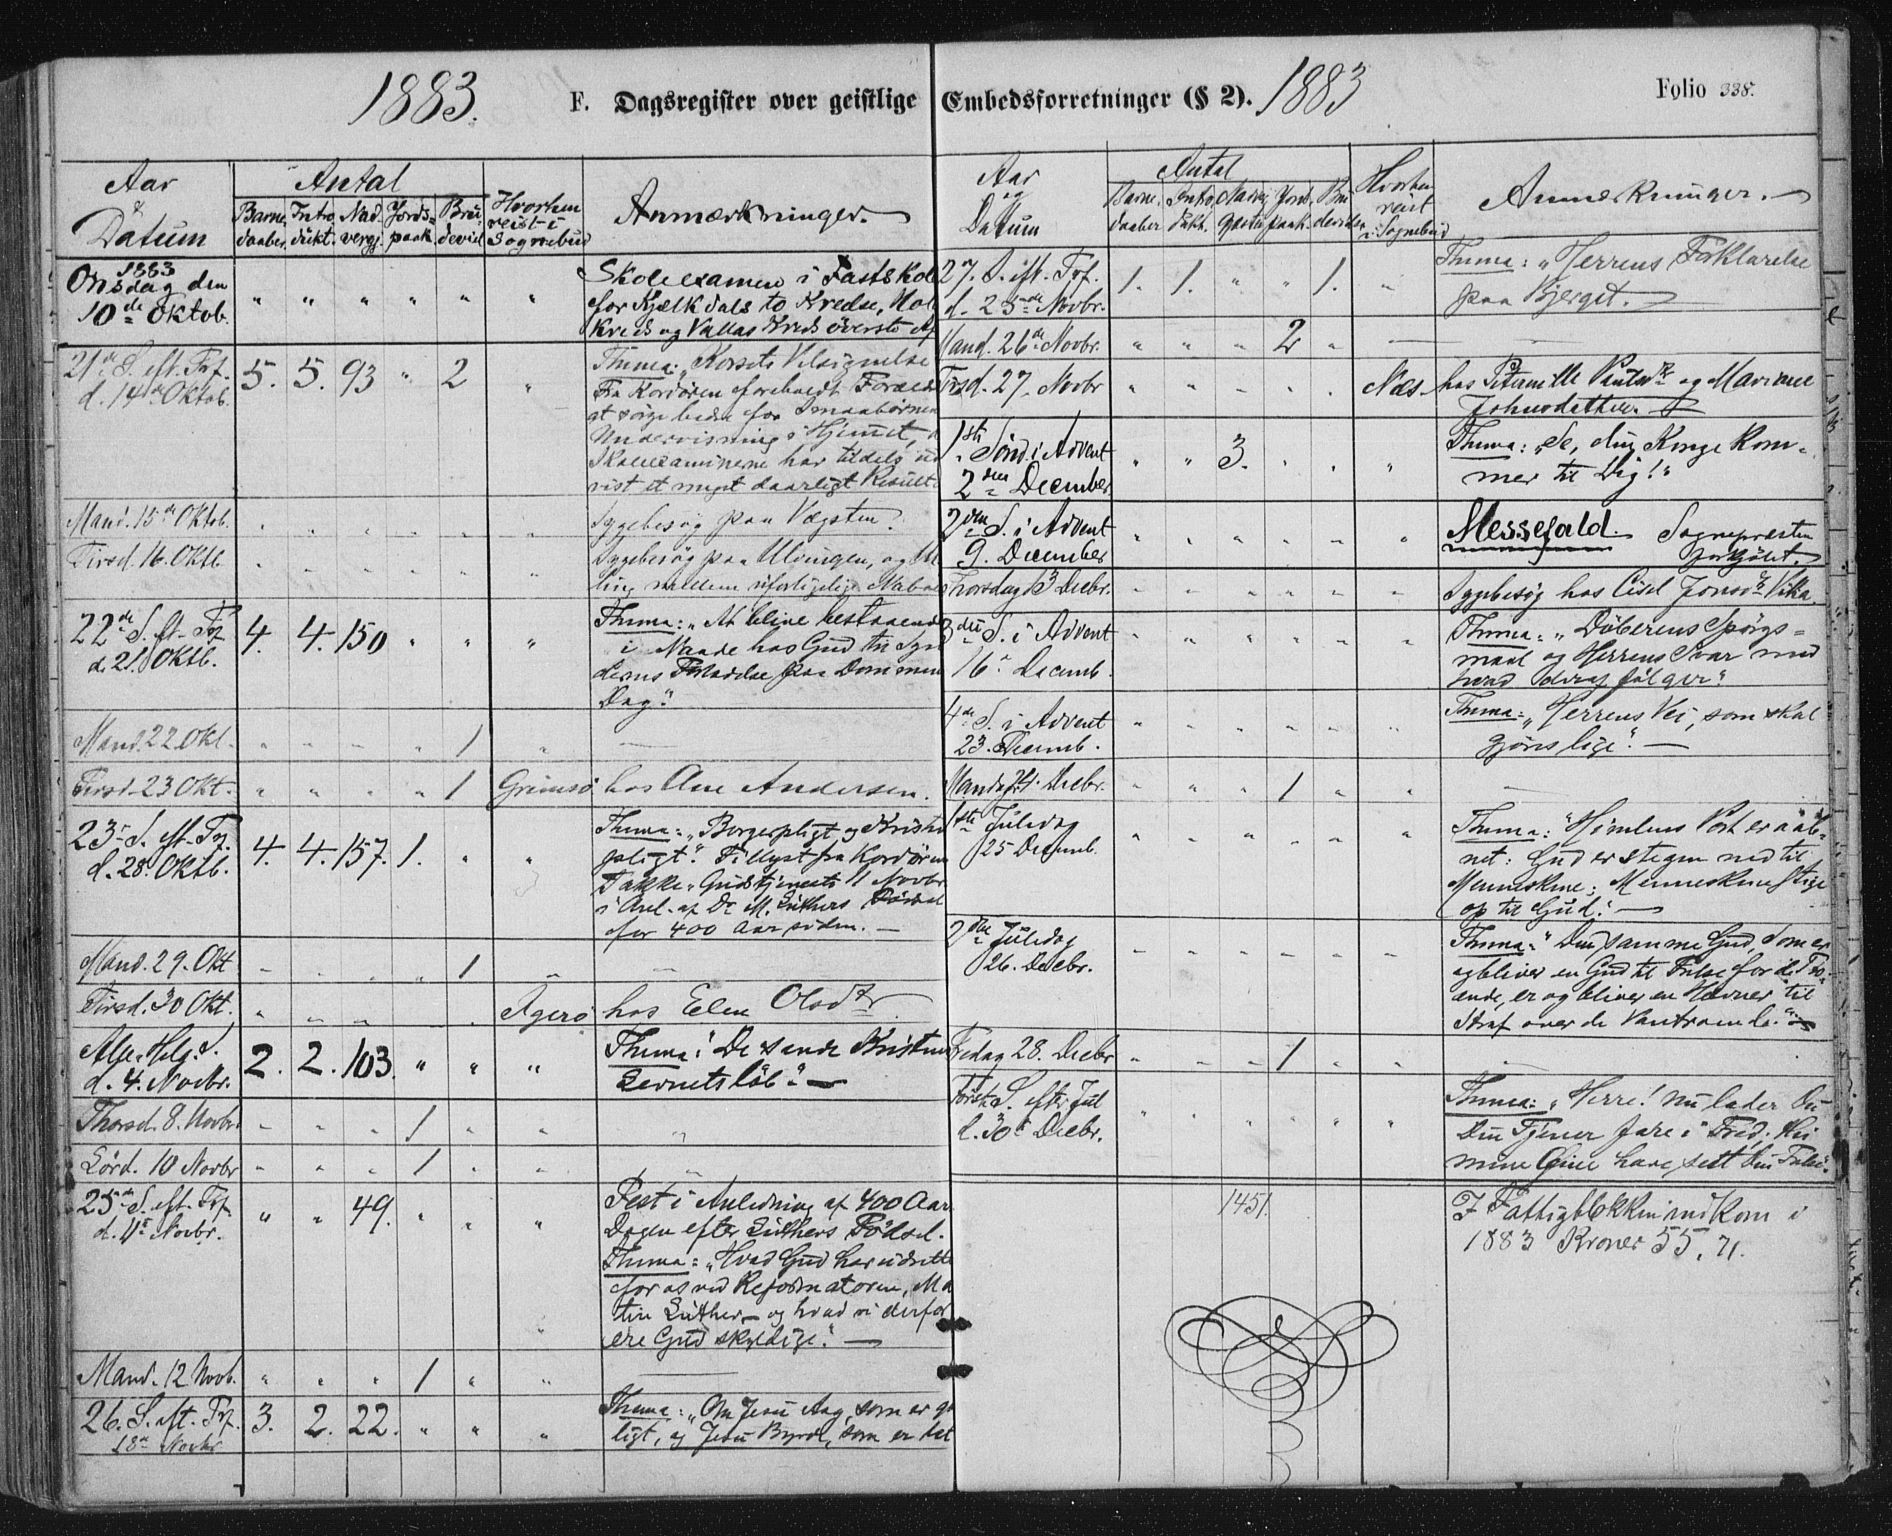 1883.
F. Dagsregister over geistlige Embedsforretninger (§ 2).
1883
Folio 338.
Aar & Datum
Antal
Barnedaaber. Introdukt. Nadvergj. Jordspaak. Brudeviel.
Hvorhen reist i Sognebud
Anmærkninger.
1883
Onsdag den " " " " " " Skoleexamen i Fastskol
10de Oktob. for Kjælkdals to Kredse,
Kreds og Vallas Kreds överste Af
21de S. eft. Trf. 5. 5. 93 " 2 " Thema: "Korsets Velsignelse
d. 14de Oktob. Fra Kordören foreholdt Foræld
at sörge bedre for Smaabörnene
Undervisning i Hjemmet,
Skoleexaminerne har tildels ud
vist et meget daarligt Result
Mand. 15de Oktob. " " " " " " Sygebesög paa Vægsten.
Tirsd. 16. Oktb. " " " " " " Sygebesög paa Ulvingen, og M
ling mellem uforligelige Naboe
22de S. eft. Trf 4. 4. 150 " " " Thema: "At blive bestaaende
d. 21. Oktb. i Naade hos Gud til Syn
dernes Forladelse paa Dommen
Dag."
Mand. 22 Okt. " " " " 1 " —
Tirsd. 23 Okt. " " " " 1 Grimsö hos Ane Andersen.
23de S. eft. Trf. 4. 4. 157. 1. " " Thema: "Borgerpligt og Kristen
d. 28. Oktb. pligt." Tillyst fra Kordören
Takke-Gudstjeneste 11 Novbr
i Anl. af Dr M. Luthers Födsel
for 400 Aar siden. —
Mand. 29. Okt " " " " 1 " "
Tirsd. 30 Okt. " " " " " Agerö hos Elen Olsdtr.
Alle-Helg. S. 2. 2. 103. " " " Thema: "De sande Kristnes
d. 4. Novbr. Levnetslöb." —
Thorsd. 8. Novbr. " " " 1 " " "
Lörd. 10 Novbr " " " 1 " " "
25de S. eft. Trf. " " 49. " " " Fest i Anledning af 400 Aars
d. 11te Novbr. Dagen efter Luthers Födsel.
Thema: "Hvad Gud har udrette
for os ved Reformatoren, Ma
tin Luther — og hvad vi derfor
ere Gud skyldige." —
Mand. 12 Novb. " " " 1 " " —
26. S. eft. Trf. 3. 2. 22. " " " Thema: "Om Jesu Aag, som er ga
18de Novbr ligt, og Jesu Byrde, som er let
Aar og Datum
Antal
Barnedaaber. Introdukt. Nadvergjæster Jordspaak. Brudevielser
Hvorhen reist i Sognebud
Anmærkninger.
27. S. eft. Trf. 1. 1. " " 1. " Thema: "Herrens Foklarelse
d. 25de Novbr. paa Bjerget. —
Mand. 26de Novbr. " " " 2 " — —
Tirsd. 27. Novbr " " " " " Næs hos Piternille og Mariane
Johnsdatter.
1ste Sönd. i Advent " " 3. " " " Thema: "Se, din Konge kom-
2den December mer til Dig!"
2den S. i Advent " " " " " " Messefald. Sognepræsten
9. December forkjölet.
Thorsdag 13 Decbr. " " " " " " Sygebesög hos Cisel Jonsdtr Vika.
3die S. i Advent " " " " " " Thema: "Döberens Spörgs=
16de Decemb. maal og Herrens Svar med
hvad deraf fölger."
4de S. i Advent " " " " " " Thema: "Herrens Vei, som skal
23. Decemb. gjöres lige." —
Mandag 24. Decbr. " " " 1 " " —
1ste Juledag " " " " " " Thema: "Himlens Port er aab-
25 Decemb. net: Gud er stegen ned til
Menneskene; Menneskene stige
op til Gud." —
2den Juledag " " " " " " Thema: "Den samme Gud, som er
26. Decbr. og bliver en Gud til Frelse for de Tro-
ende, er og bliver en Hævner til
Straf over de Vantroende." —
Fredag 28. Decbr " " " 1 " " "
Förste S. efter Jul " " " " " " Thema: "Herre! nu lader Du
d. 30te Decbr. Din Tjener fare i Fred; thi
mine Öine have seet Din Frelse."
1451. I Fattigblokken indkom i
1883 Kroner 55,71.